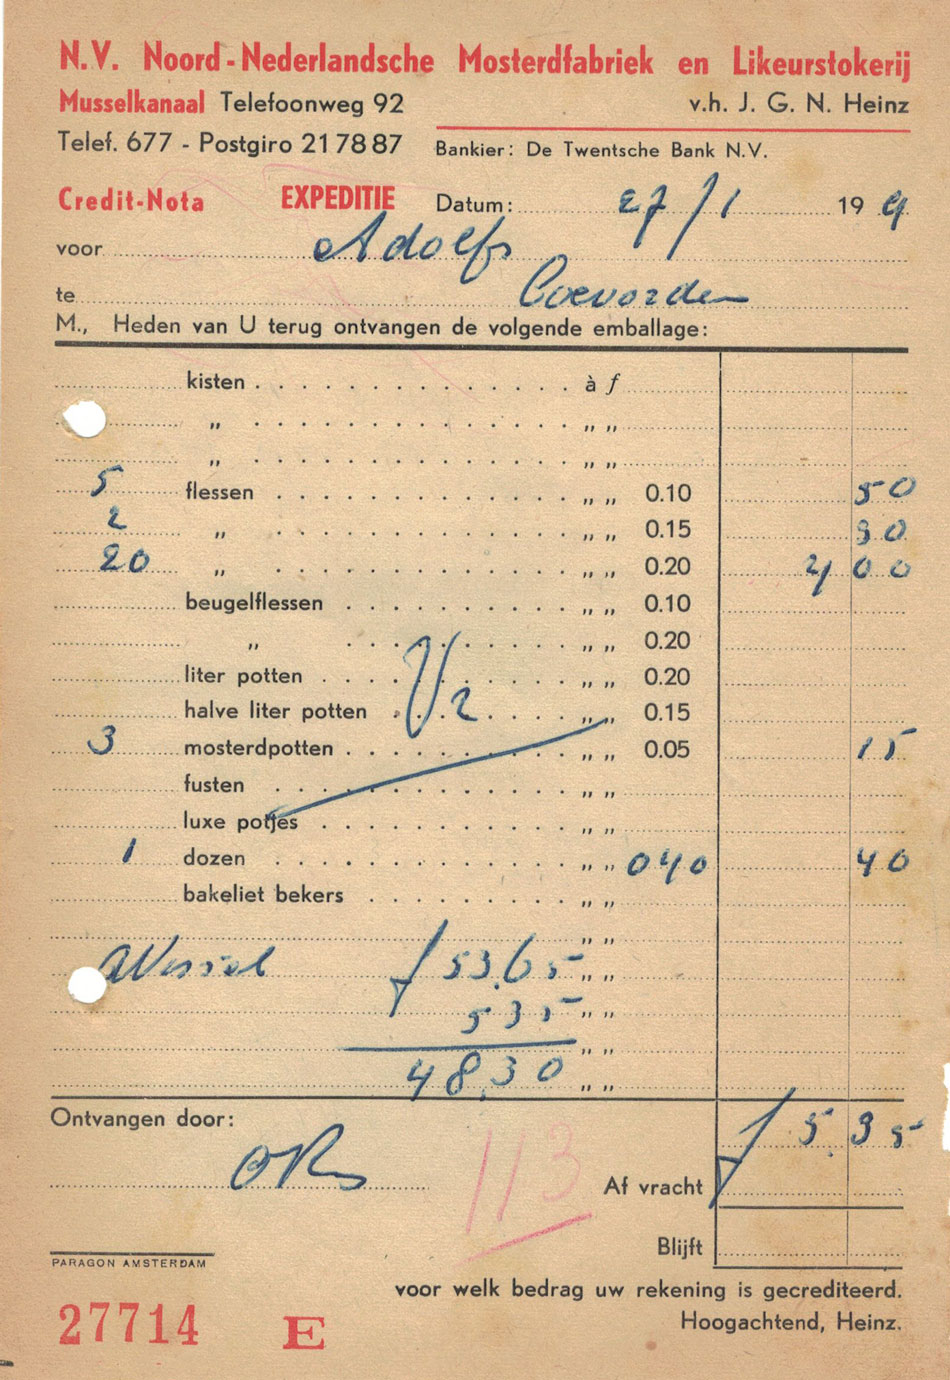 N.V. Noord-Nederlandsche Mosterdfabriek en Likeurstokerij
Musselkanaal Telefoonweg 92 v.h. J. G. N. Heinz
Telef. 677 - Postgiro 217887 Bankier: De Twentsche Bank N.V.
Credit-Nota EXPEDITIE Datum: 27/1 19
voor Adolfs
te Coevorden
M., Heden van U terug ontvangen de volgende emballage:
kisten à f
„ „ „
„ „ „
5 flessen „ „ 0.10 50
2 „ „ „ 0.15 30
20 „ „ „ 0.20 4 00
beugelflessen „ „ 0.10
„ „ „ 0.20
liter potten „ „ 0.20
halve liter potten „ „ 0.15
3 mosterdpotten „ „ 0.05 15
fusten „ „
luxe potjes „ „
1 dozen „ „ 040 40
bakeliet bekers „ „
„ „
f 53.65 „ „
535 „ „
„ „
48.30 „ „
Ontvangen door: f 5.35
113
Af vracht
Blijft
PARAGON AMSTERDAM
voor welk bedrag uw rekening is gecrediteerd.
27714 E Hoogachtend, Heinz.